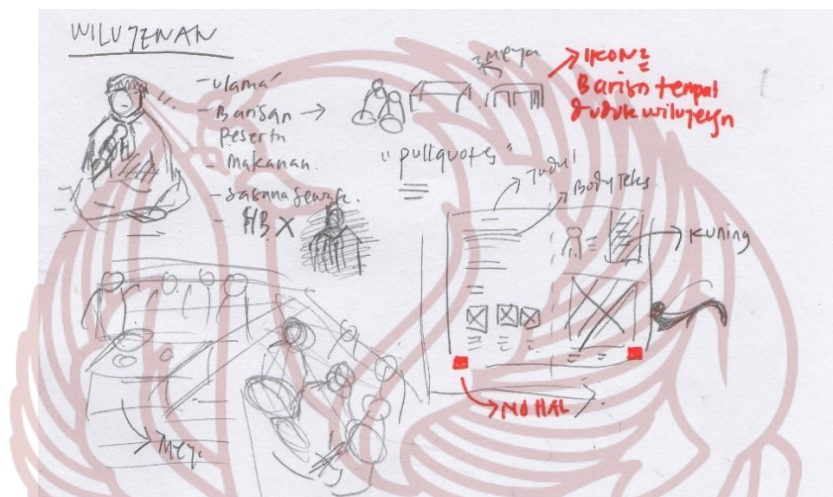 WILUJENAN
- ulama
- Barisan
peserta
- Makanan
HB X
meja
IKON2
Barisn tempat
duduk wilujeyn
"pullquotes"
Judul
Body Teks.
Kuning
NO HAL
Mej.